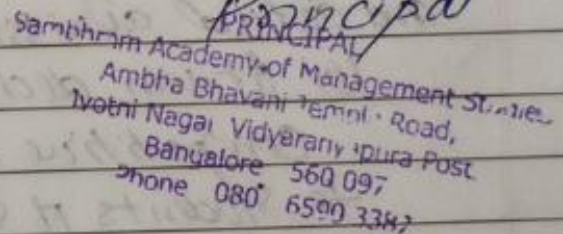 Principal
PRINCIPAL
Sambhram Academy of Management Studies
Ambha Bhavani Temple Road,
Jyothi Nagar Vidyaranyapura Post
Bangalore 560 097
Phone 080 6590 3347